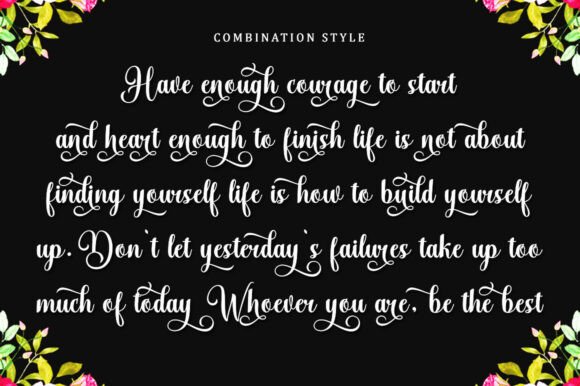 COMBINATION STYLE
Have enough courage to start
and heart enough to finish life is not about
finding yourself life is how to build yourself
up. Don't let yesterday's failures take up too
much of today Whoever you are, be the best